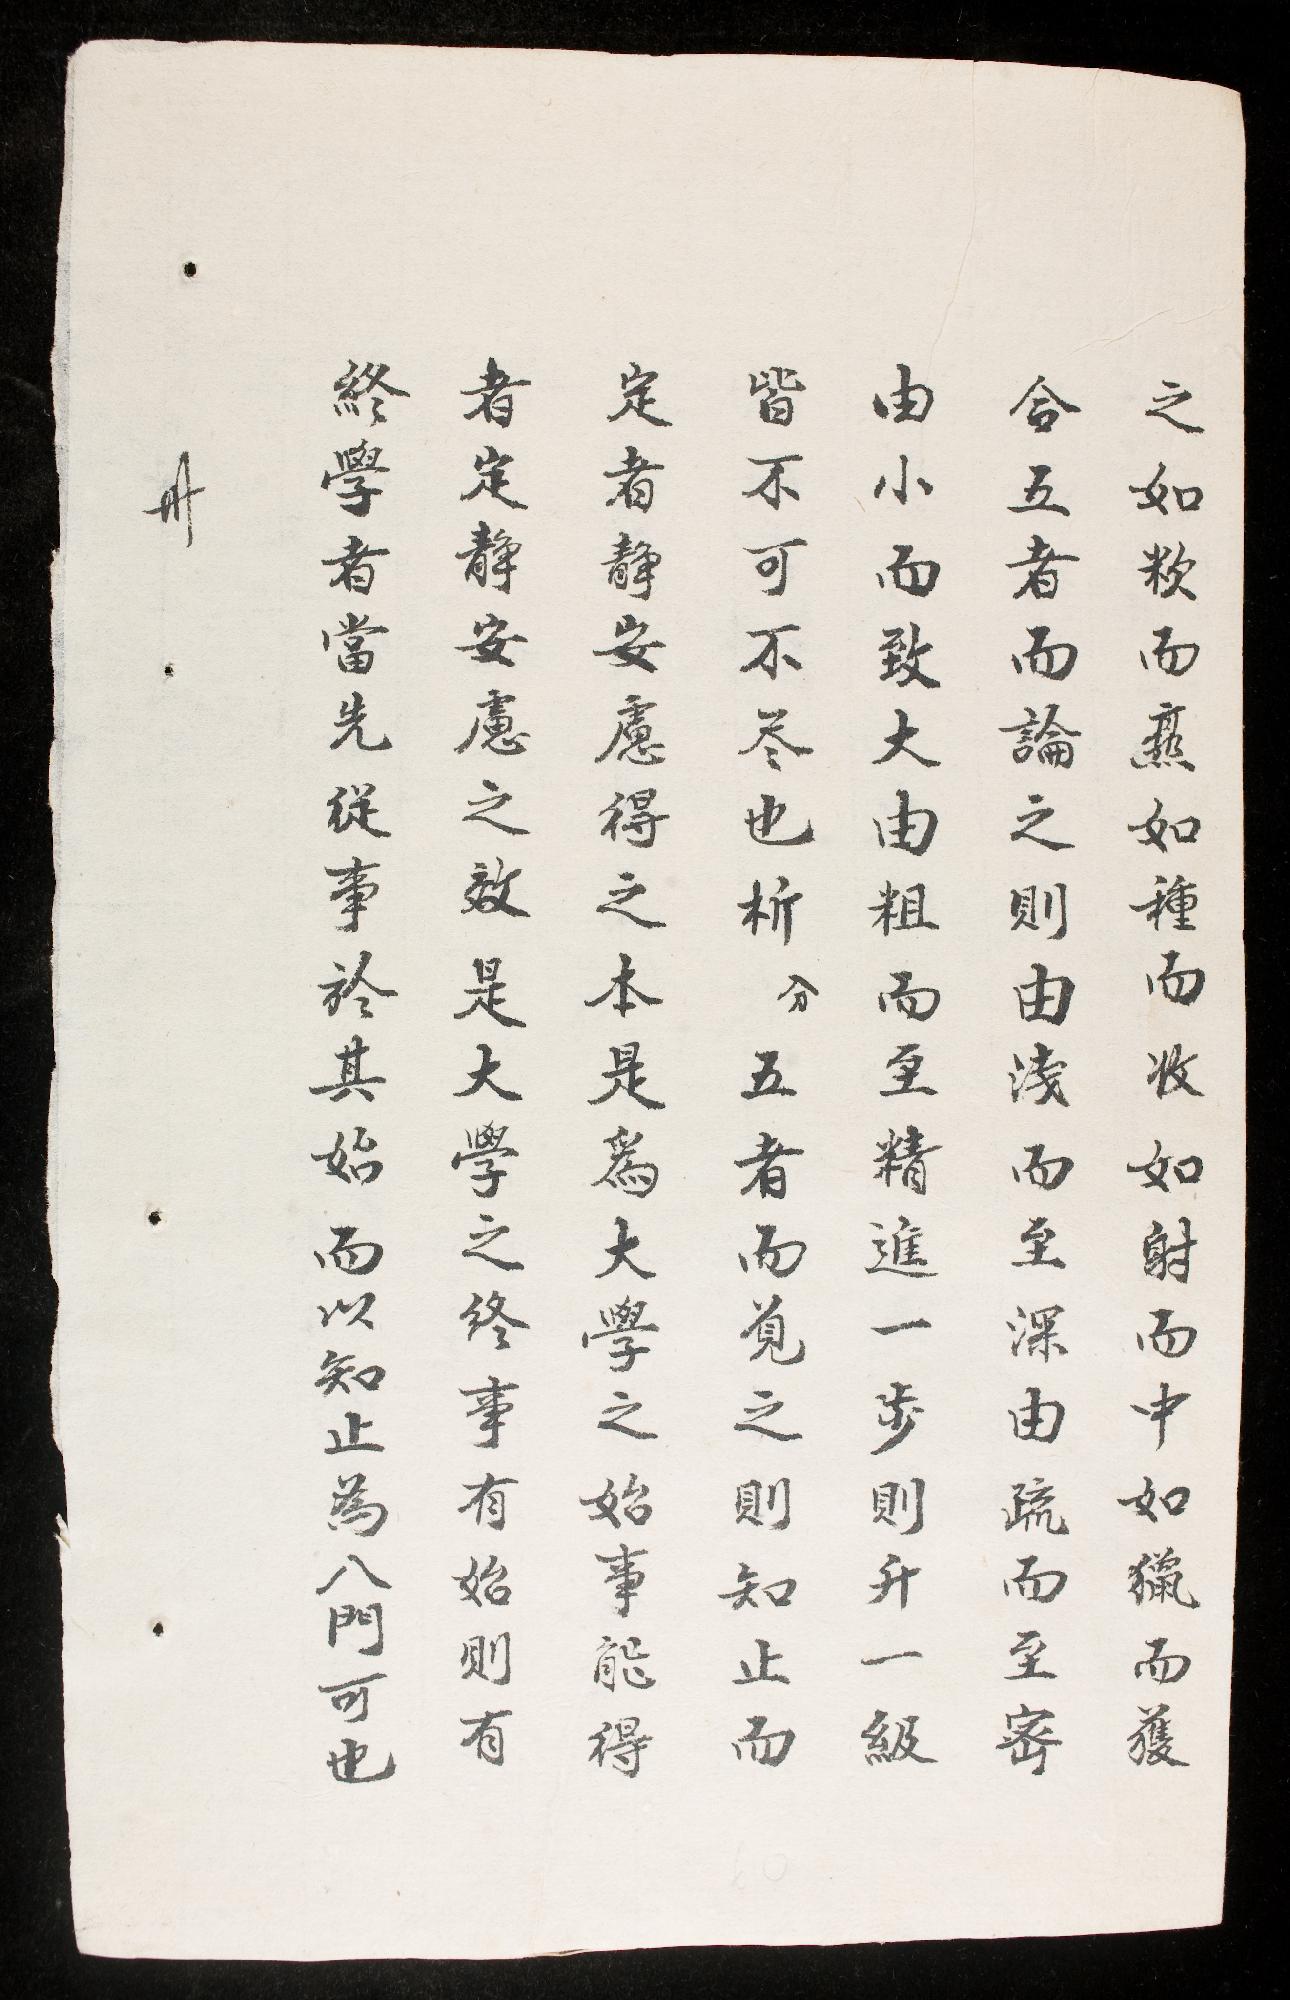 之如炊而熟如種而收如射而中如獵而獲
合五者而論之則由淺而至深由疏而至密
由小而致大由粗而至精進一步則升一級
皆不可不尽也析分五者而覓之則知止而
定者靜安慮得之本是爲大學之始事能得
者定靜安慮之效是大學之終事有始則有
終學者當先從事於其始而以知止為八門可也
卅